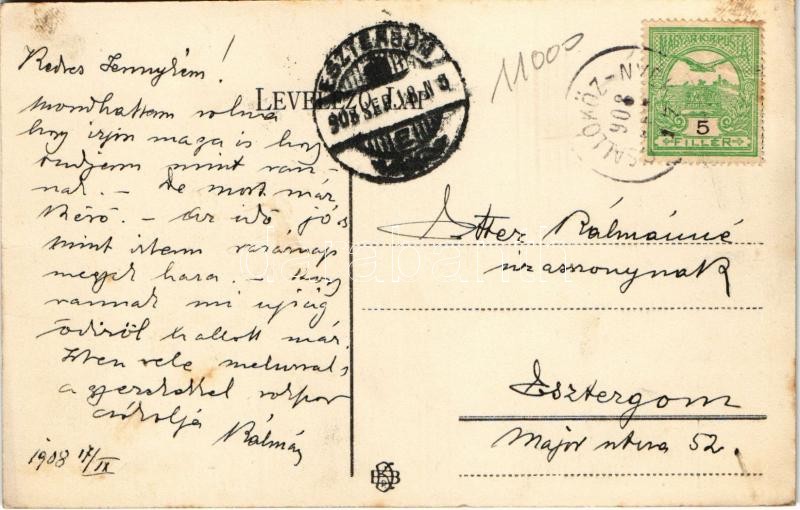 Kedves Jennykém!
Mondhattam volna
hogy írjon maga is hogy
tudjam mint van-
nak. – De most már
késő. – Az idő jó s
mint írtam vasárnap
megyek haza. – Hogy
vannak mi ujság
hallott már.
Isten vele
a gyerekekkel
csókolja
Kálmán
1908 17/IX
LEVELEZŐ-LAP
ESZTERGOM
908 SEP. 18. N 3
11000
CSALLÓKÖZ-NY
908
MAGYAR KIR. POSTA
5
FILLÉR
Etter Kálmánné
úrasszonynak
Esztergom
Major utca 52.
darabanth